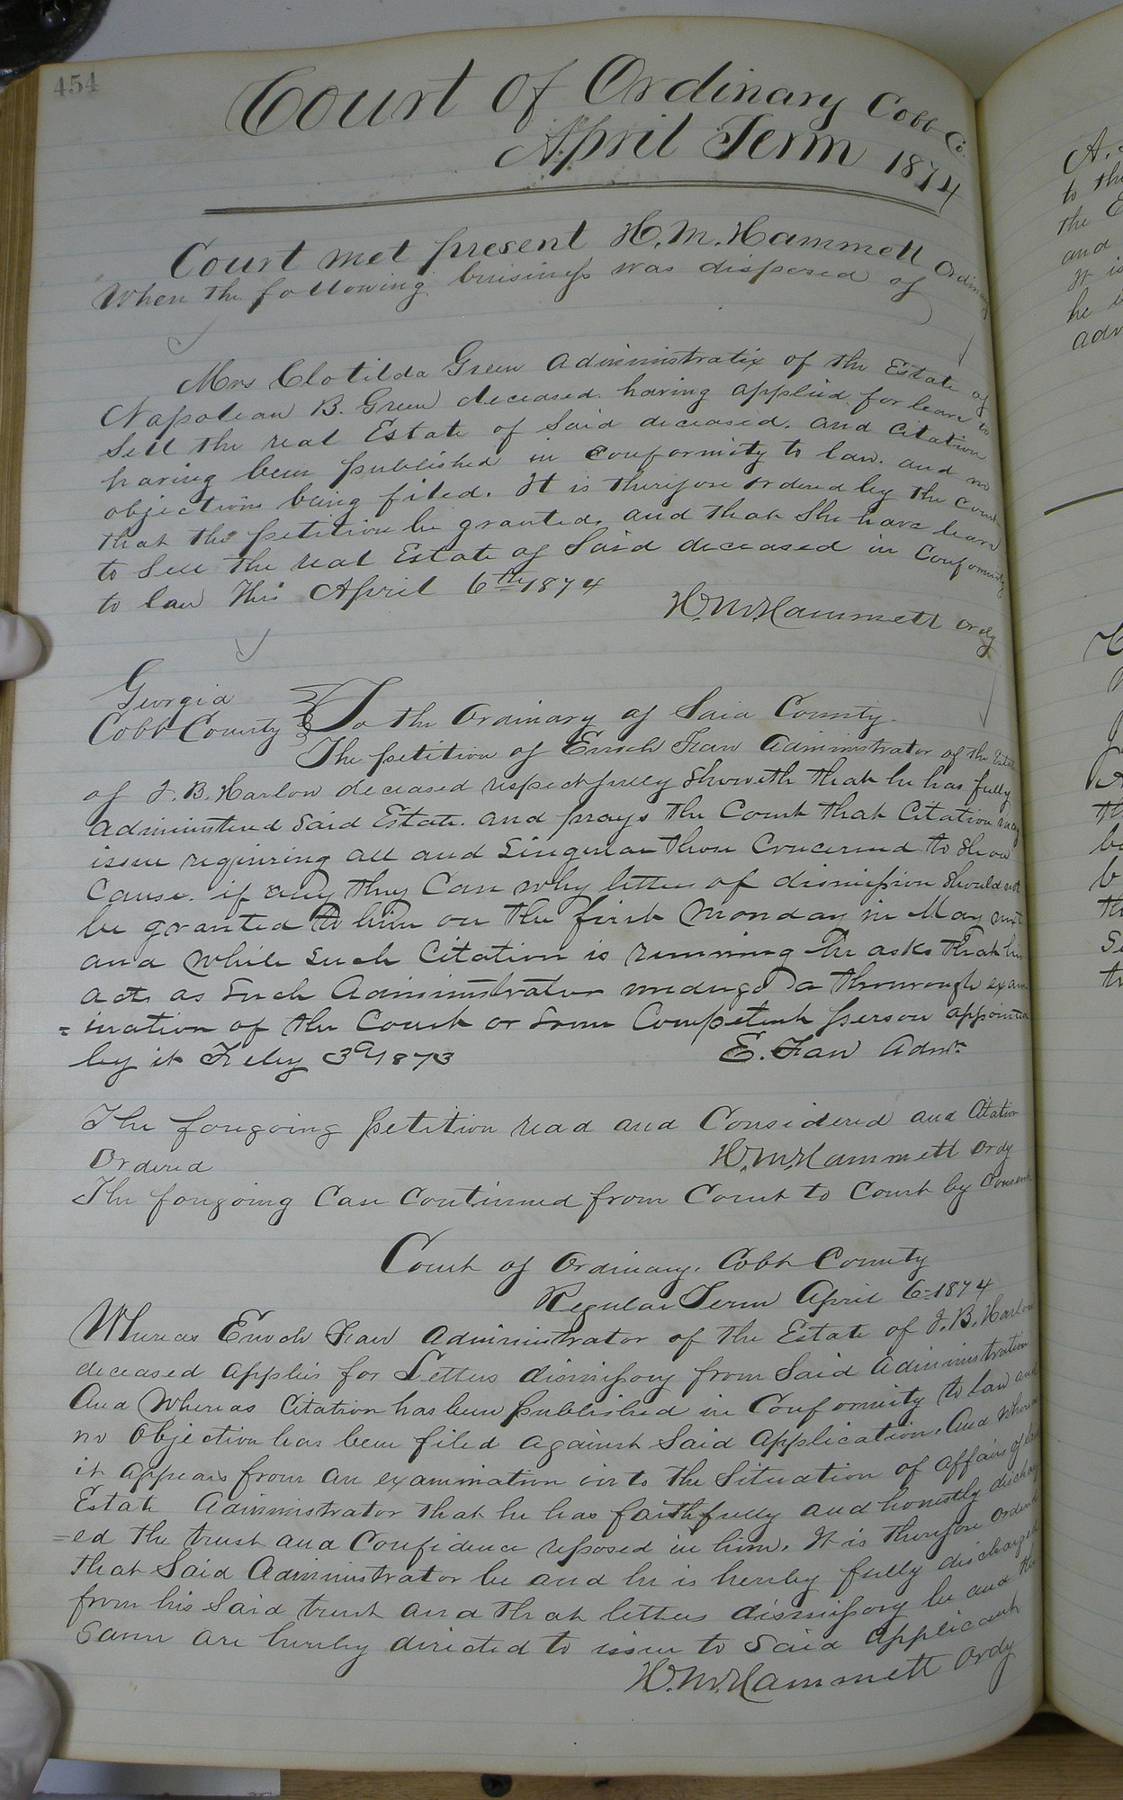 454
Court of Ordinary Cobb Co.
April Term 1874
Court met present H. M. Hammett Ordinary
When the following buisiness was disposed of
Mrs Clotilda Green Administratix of the Estate of
Napolean B. Green deceased having applied for leave to
Sell the real Estate of Said deceased. and Citation
having been published in Conformity to law. and no
objections being filed. It is therefore ordered by the Court
that the petition be granted. and that She have leave
to Sell the real Estate of Said deceased in Conformity
to law This April 6th 1874
H. M. Hammett Ordy
Georgia
Cobb County
To the Ordinary of Said County
The petition of Enoch Faw Administrator of the Estate
of J. B. Harlow deceased respectfully Showeth that he has fully
administered Said Estate. and prays the Court that Citation may
issue requiring all and Singular those Concerned to Show
Cause. if any they Can why letters of dismission Should not
be granted to him on the first Monday in May next
and while Such Citation is running he asks that his
acts as Such Administrator undergo a thourough exam
=ination of the Court or Some Competent person appointed
by it Feby 3d 1873
E. Faw Admr
The foregoing petition read and Considered and Citation
Ordered
H. M. Hammett Ordy
The foregoing Case Continued from Court to Court by Consent
Court of Ordinary. Cobb County
Regular Term April 6- 1874
Whereas Enoch Faw Administrator of the Estate of J. B. Harlow
deceased applies for Letters dismissory from Said Administration
And Whereas Citation has been published in Conformity to law and
no Objection has been filed against Said Application. And Whereas
it appears from an examination into the Situation of affairs of
Estate Administrator that he has faithfully and honestly discharg
=ed the trust and Confidence reposed in him. It is therefore ordered
that Said Administrator be and he is hereby fully discharged
from his Said trust and that letters dismissory be and the
Same are hereby directed to issue to Said Applicant
H. M. Hammett Ordy